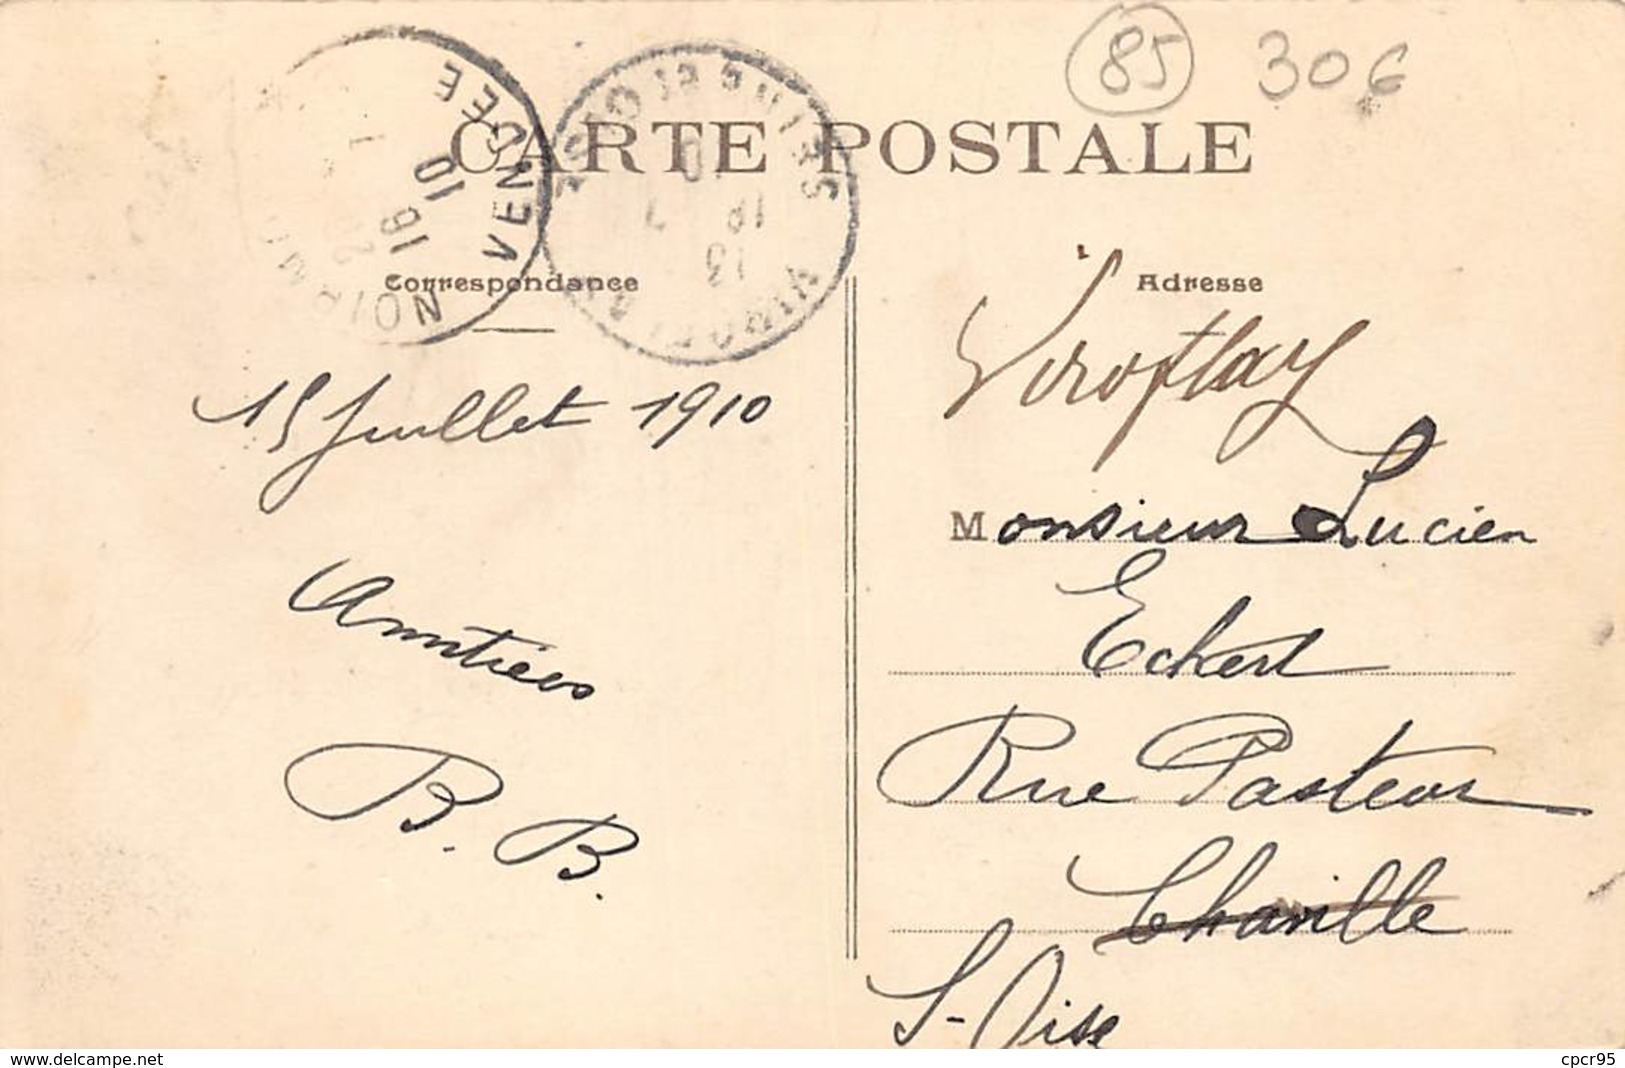 85 30€
CARTE POSTALE
VENDEE
16 10
Correspondance
Adresse
Viroflay
15 Juillet 1910
Monsieur Lucien
Eckert
Amitiés
Rue Pasteur
B. B.
Chaville
S-Oise
www.delcampe.net
cpcr95